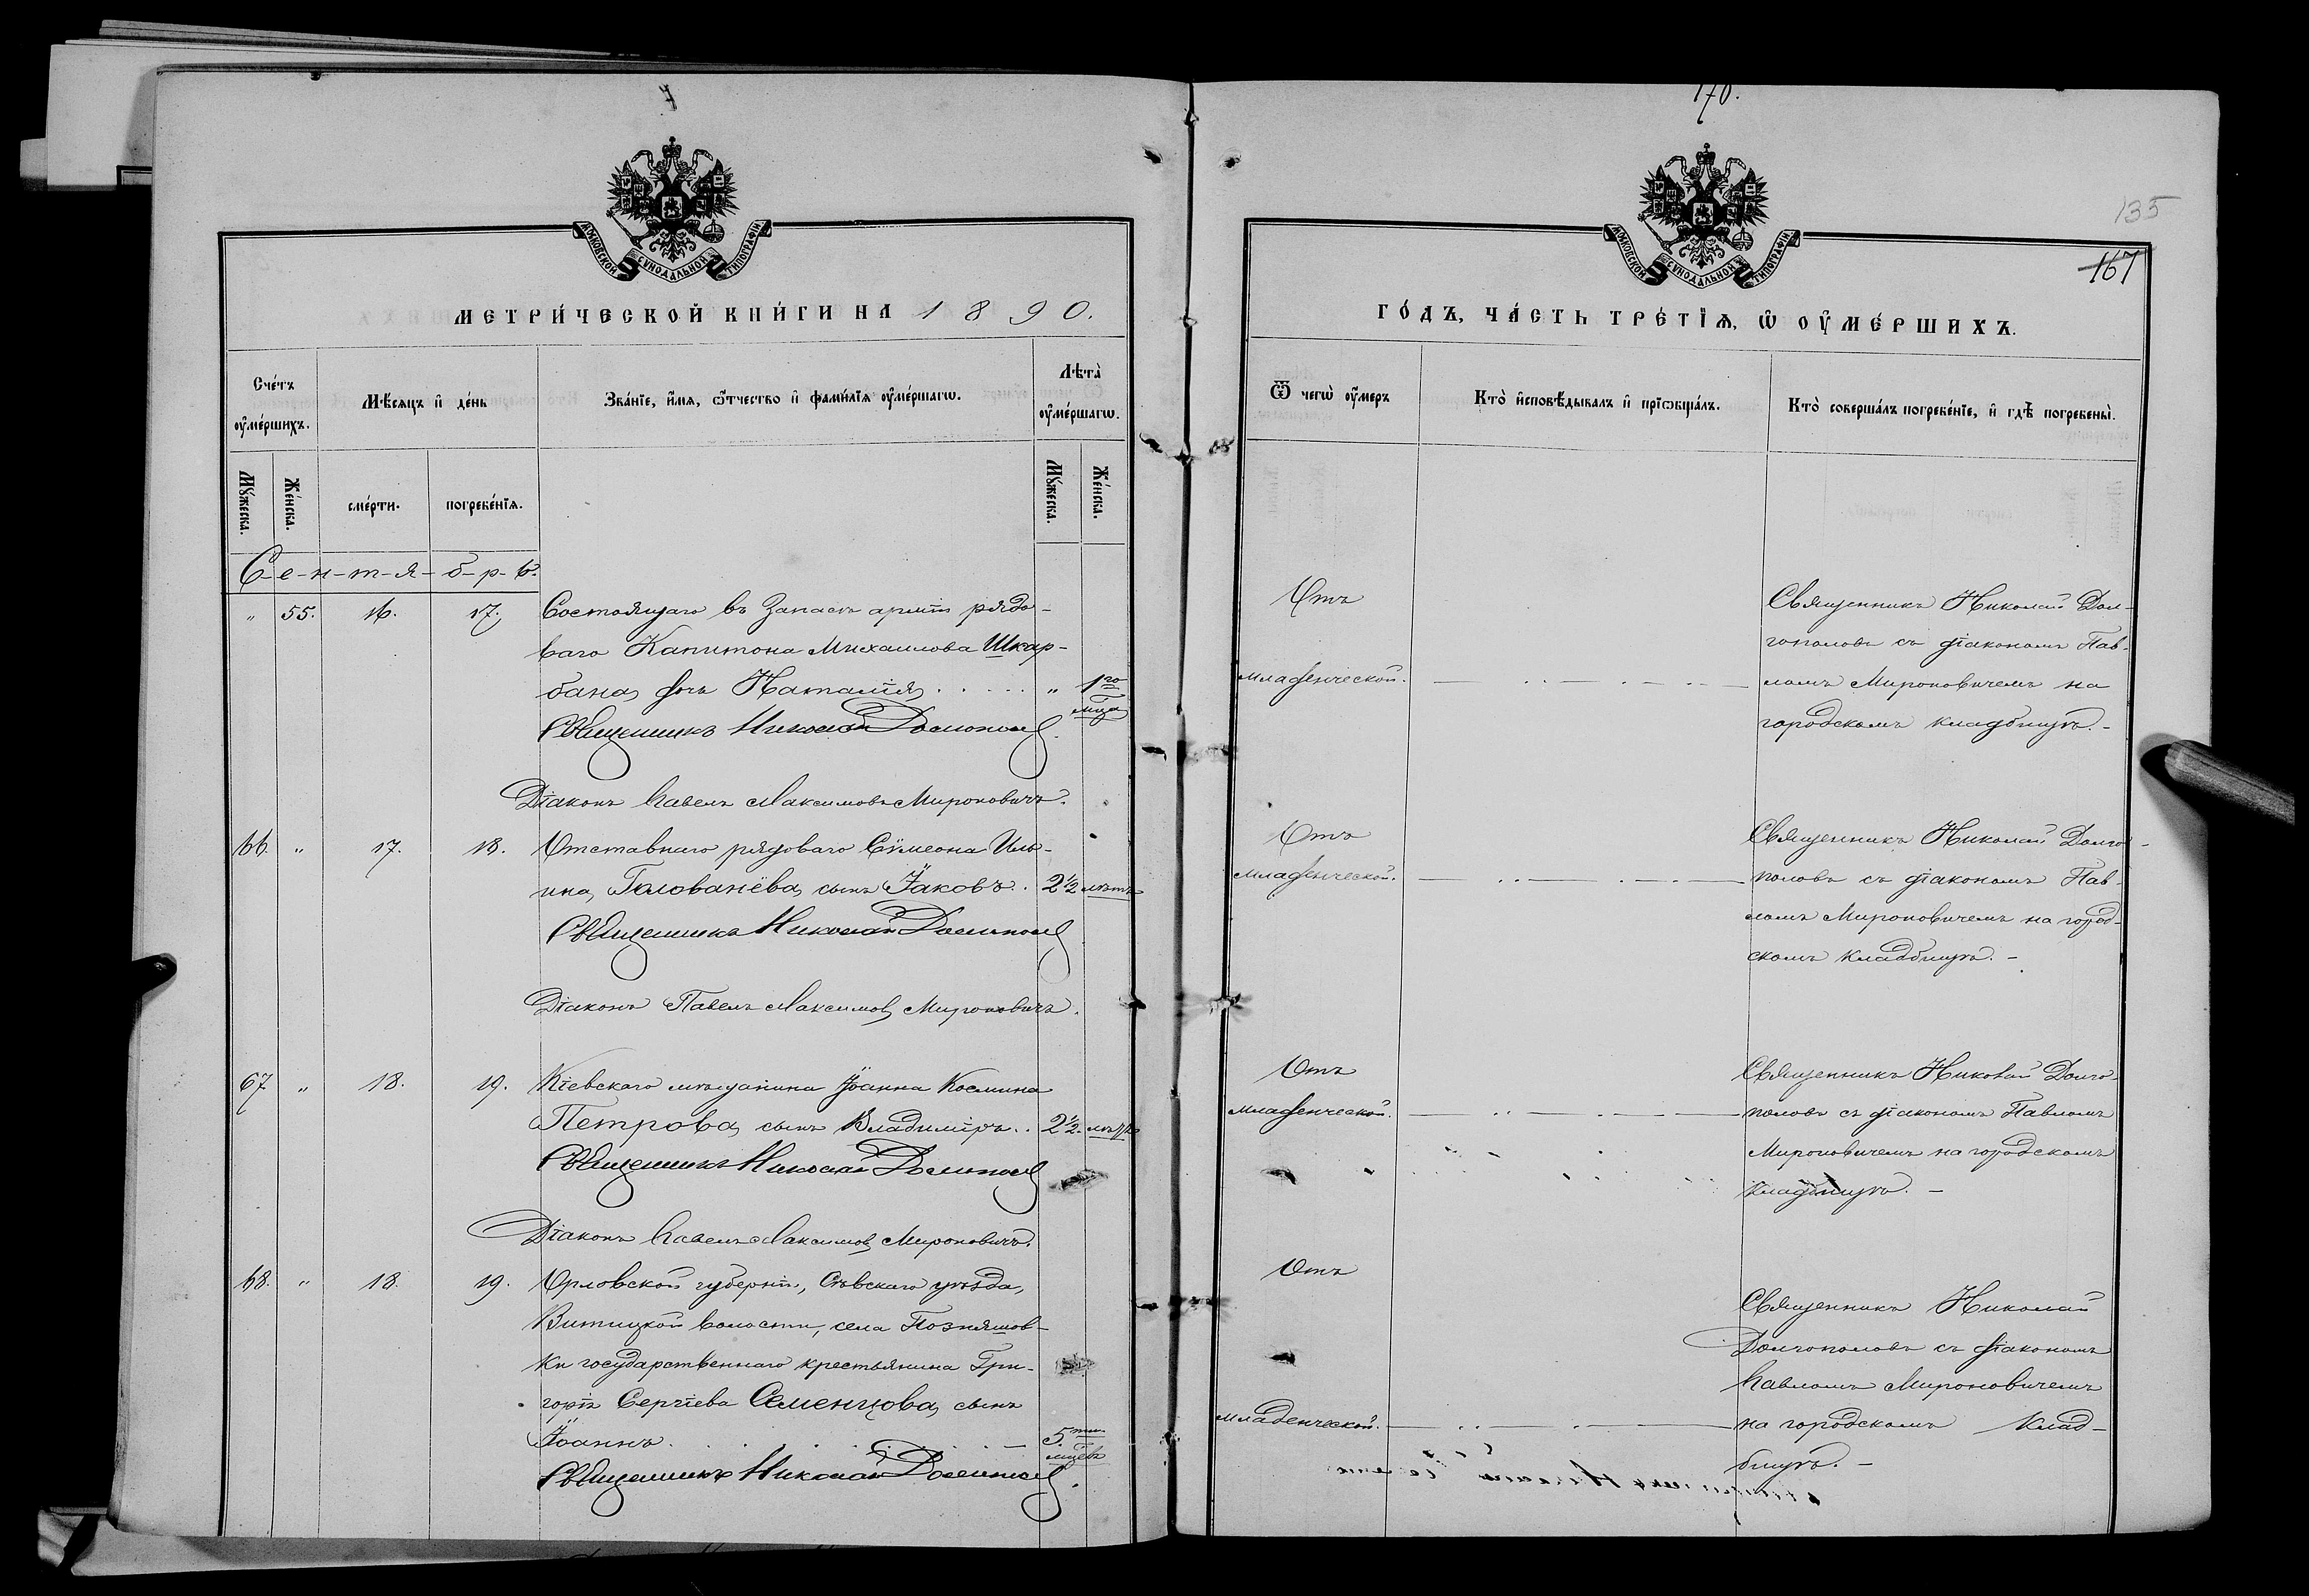 МОСКОВСКОЙ СѴНОДАЛЬНОЙ ТИПОГРАФІИ
МЕТРИ́ЧЕСКОЙ КНИ́ГИ НА 1890.
Сче́тъ ᲂу҆ме́ршихъ.
Мѣ́сяцъ и҆ де́нь
Зва́нїе, и҆́мя, ѻ҆́тчество и҆ фами́лїя ᲂу҆ме́ршагѡ.
Лѣта̀ ᲂу҆ме́ршагѡ.
Мꙋ́жеска.
Же́нска.
сме́рти.
погребе́нїя.
Мꙋ́жеска.
Же́нска.
С-е-н-т-я-б-р-ь.
" 55. 16. 17. Состоящаго въ Запасѣ арміи рядо-
ваго Капитона Михаилова Шкар-
бана, дочь Наталія . . . . . " 1го мѣца
Священникъ Николай Долгополовъ.
Діаконъ Павелъ Максимовъ Мироновичъ.
66. " 17. 18. Отставнаго рядоваго Сѵмеона Иль-
ина, Голованёва, сынъ Іаковъ. . 2½ лѣтъ
Священникъ Николай Долгополовъ
Діаконъ Павелъ Максимовъ Мироновичъ.
67 " 18. 19. Кіевскаго мѣщанина Іоанна Космина
Петрова, сынъ Владиміръ. . 2½. лѣтъ
Священникъ Николай Долгополовъ
Діаконъ Павелъ Максимовъ Мироновичъ.
68. " 18. 19. Орловской губерніи, Сѣвскаго уѣзда,
Витицкой волости, села Позняшов-
ки государственнаго крестьянина Гри-
горія Сергіева Семенцова, сынъ
Іоаннъ. . . . . . . 5ти мѣцевъ
Священникъ Николай Долгополовъ.
170.
135
167
МОСКОВСКОЙ СѴНОДАЛЬНОЙ ТИПОГРАФІИ
ГО́ДЪ, ЧА́СТЬ ТРЕ́ТЇѦ, Ѡ҆ ОУ҆МЕ́РШИХЪ.
Ѿ чегѡ̀ ᲂу҆́меръ
Кто̀ и҆сповѣ́дывалъ и҆ прїѡбща́лъ.
Кто̀ соверша́лъ погребе́нїе, и҆ гдѣ̀ погребены̀.
Отъ
младенческой.
Священникъ Николай Дол-
гополовъ съ діакономъ Пав-
ломъ Мироновичемъ на
городскомъ кладбищѣ. -
Отъ
младенческой.
Священникъ Николай Долго-
половъ съ діакономъ Пав-
ломъ Мироновичемъ на город-
скомъ кладбищѣ. -
Отъ
младенческой.
Священникъ Николай Долго-
половъ съ діакономъ Павломъ
Мироновичемъ на городскомъ
кладбищѣ. -
Отъ
младенческой.
Священникъ Николай
Долгополовъ съ діакономъ
Павломъ Мироновичемъ
на городскомъ клад-
бищѣ. -